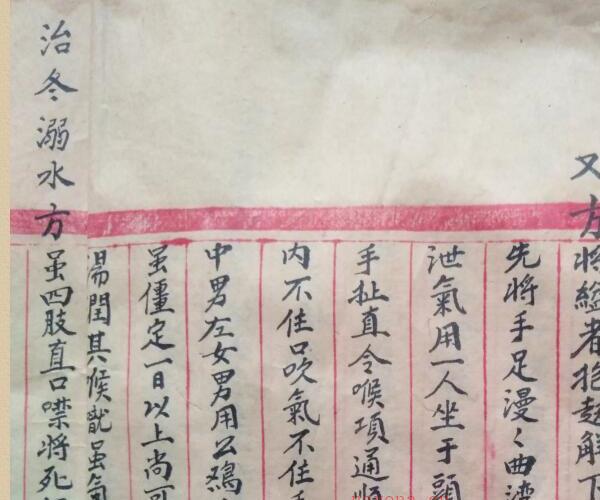 又方將縊者抱起解下
先將手足漫〻曲
泄氣用一人坐于頭
手扯直令喉項通
内不住口吹氣不住
中男左女男用公鷄
虽僵定一日以上尚可
湯閏其候就虽氣
治冬溺水方虽四肢直口噤將死